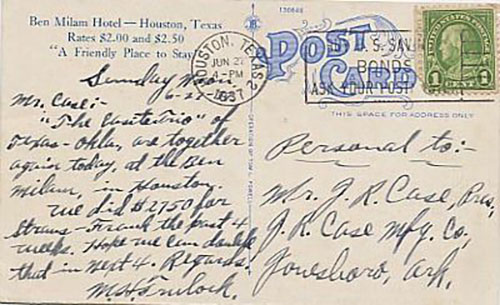 Ben Milam Hotel—Houston, Texas
Rates $2.00 and $2.50
"A Friendly Place to Stay"
Sunday
6-27-
Mr. Case:-
"The Trio" of
Texas-Okla, are together
again today, at the Ben
Milam, in Houston.
We did $2750 for
Straus-Frank the past 4
weeks. Hope we can double
that in next 4. Regards.
M.H. Trulock.
130846
POST CARD
THIS SPACE FOR ADDRESS ONLY
HOUSTON, TEXAS 2
JUN 27
4-PM
1937
U. S. SAV
BONDS
ASK YOUR POST
1 CENT 1
Personal to:-
Mr. J. R. Case, Pres,
J. R. Case Mfg. Co,
Jonesboro, Ark.